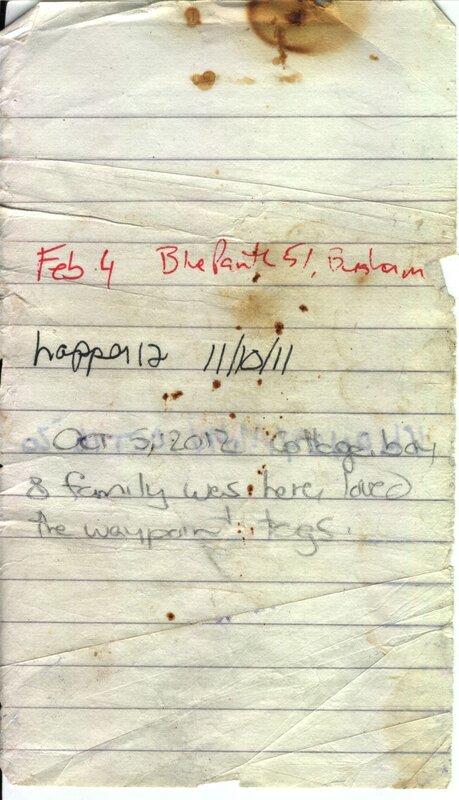 Feb 4 BluPanth 51,
happer12 11/10/11
Oct 5, 2012 Cottage boy
& family was here, loved
the waypoint tags.